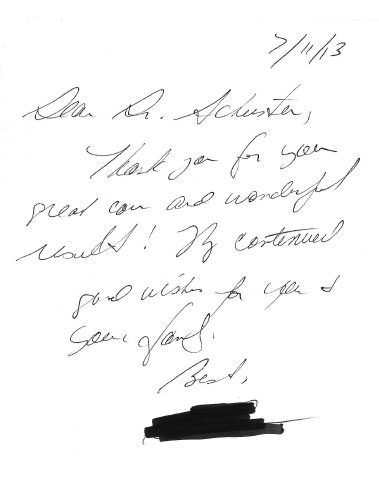 7/11/13
Dear Dr. Schuster,
Thank you for your
great care and wonderful
results! My continued
good wishes for you &
your family.
Best,